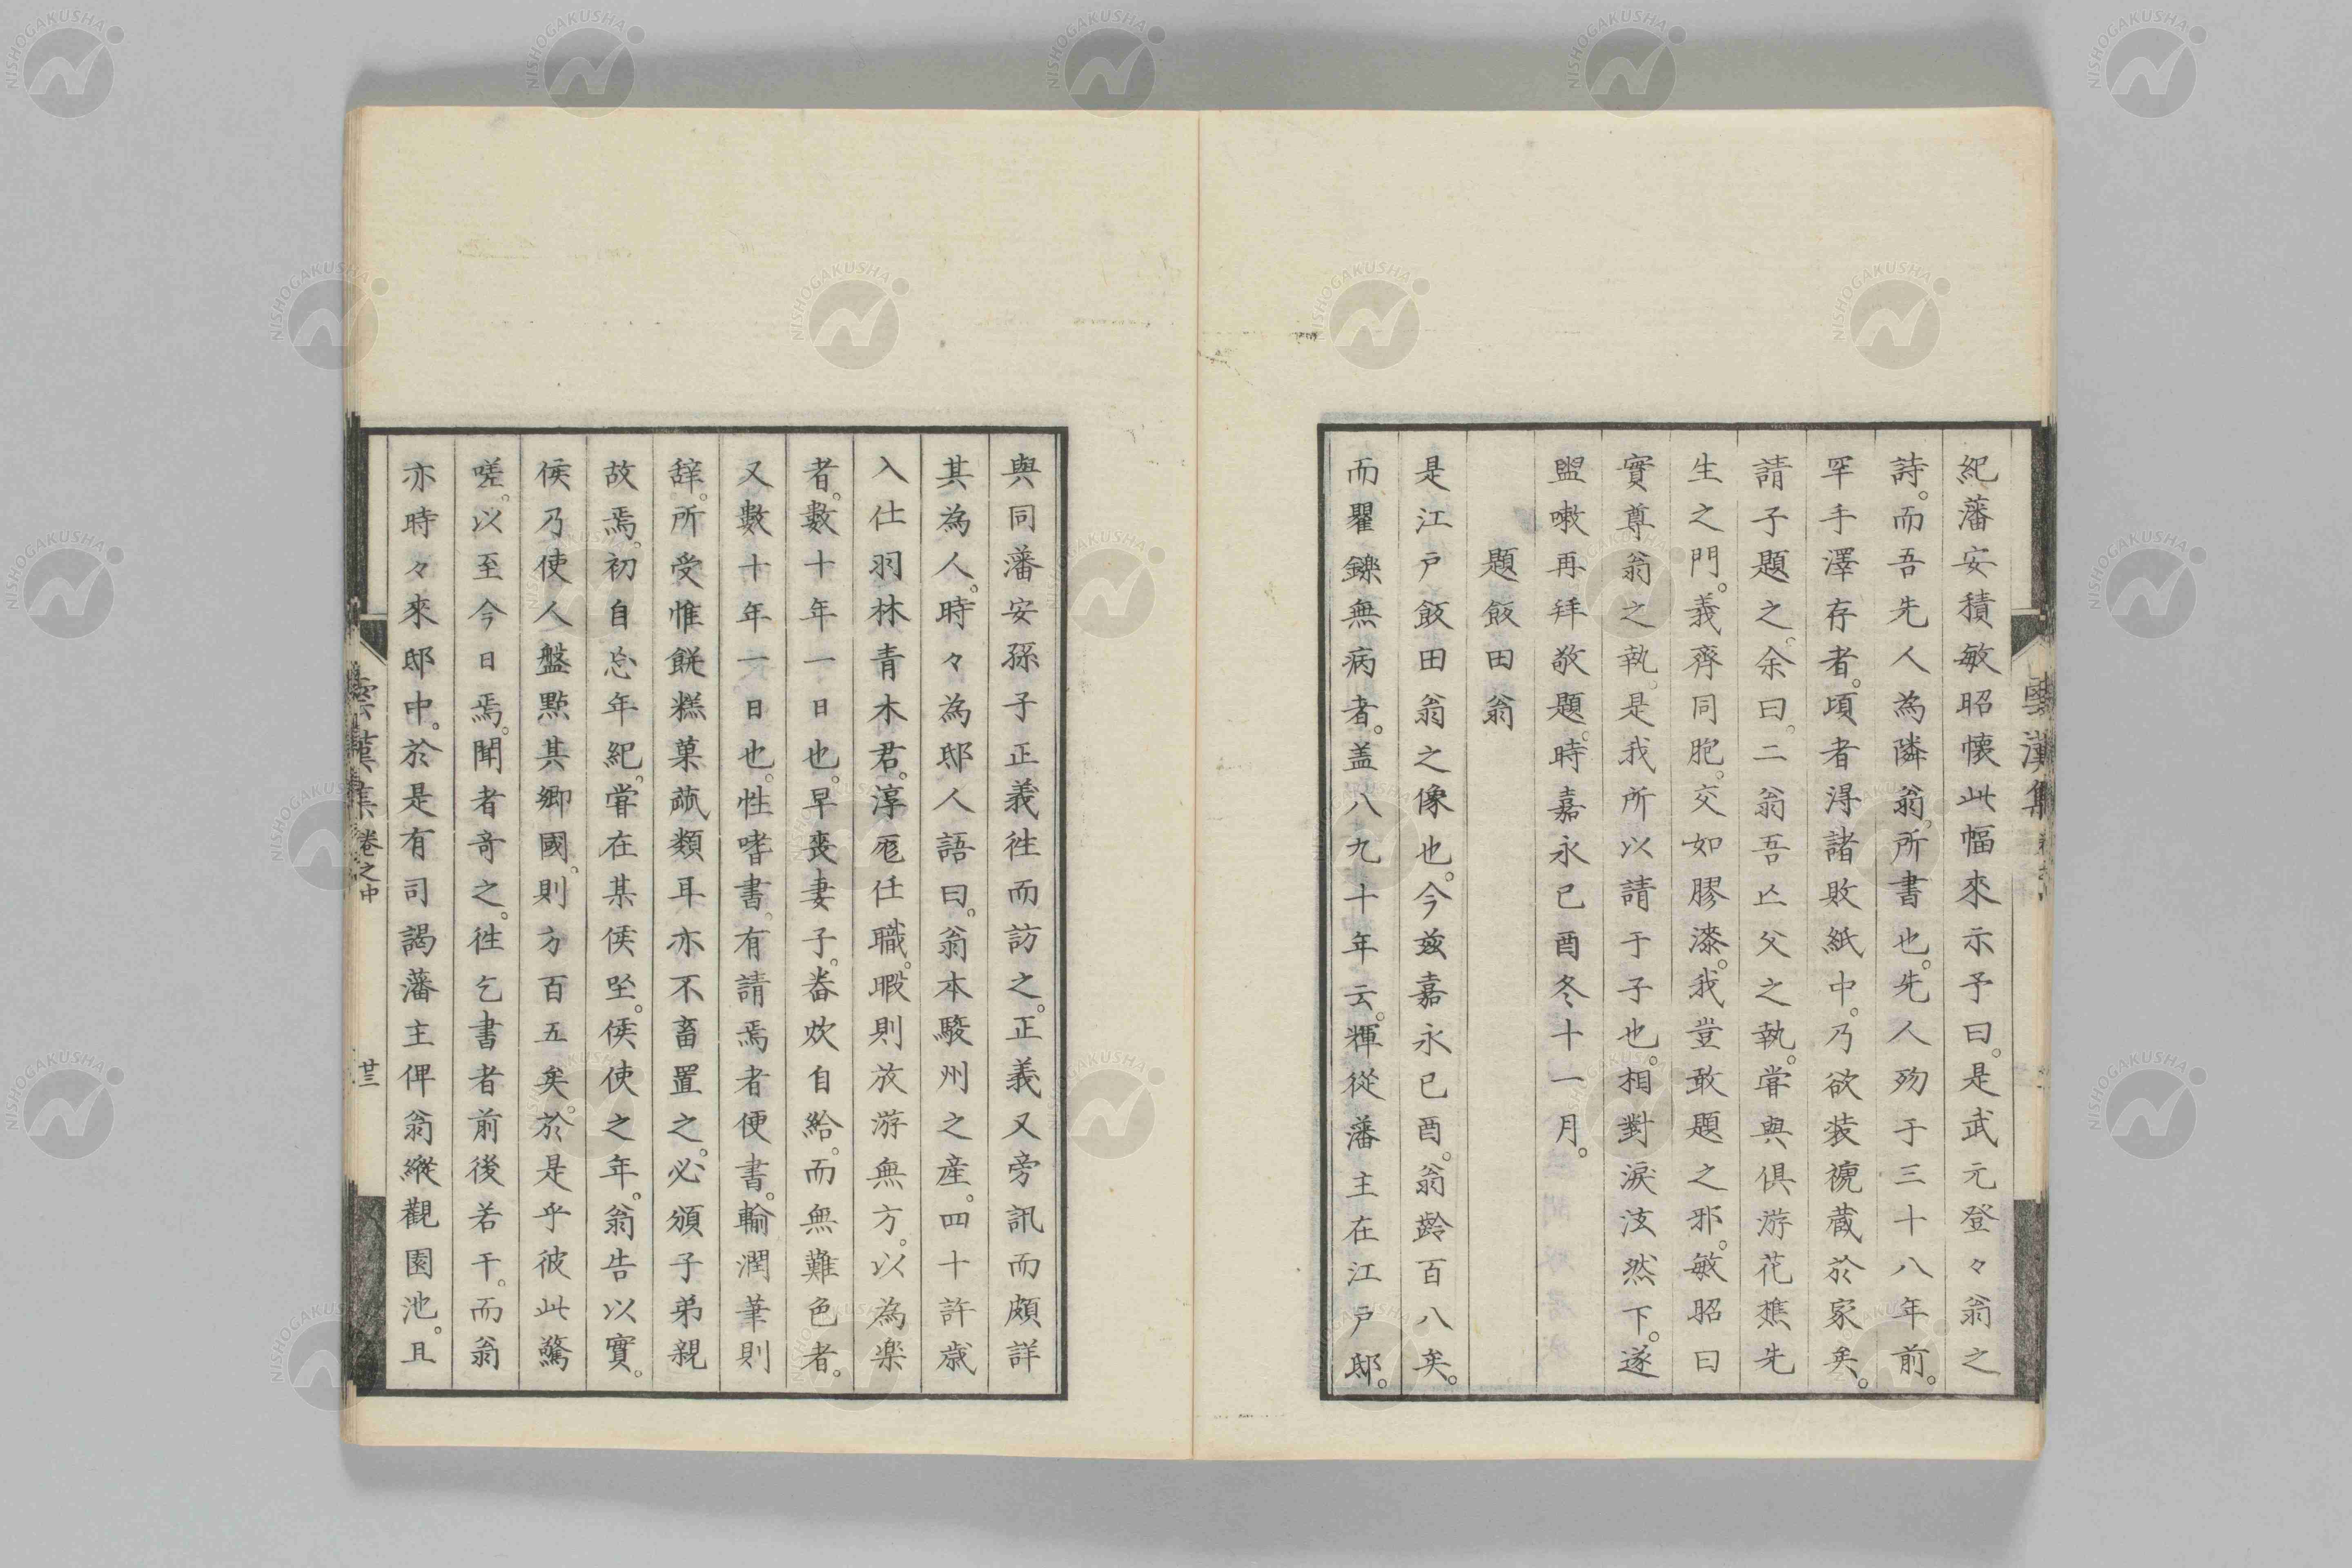 紀藩安積敏昭懷此幅來示予曰。是武元登々翁之
詩。而吾先人為隣翁。所書也。先人歿于三十八年前。
罕手澤存者。頃者淂諸敗紙中。乃欲装褫蔵於家矣。
請子題之。余曰。二翁吾亡父之執。甞與俱游花樵先
生之門。義齊同胞。交如膠漆。我豈敢題之邪。敏昭曰
實尊翁之執。是我所以請于子也。相對淚泫然下。遂
盥嗽再拜敬題。時嘉永己酉冬十一月。
題飯田翁
是江戸飯田翁之像也。今玆嘉永己酉。翁齡百八矣。
而矍鑠無病者。盖八九十年云。輝從藩主在江戸邸。
與同藩安孫子正義徃而訪之。正義又旁訊而頗詳
其為人。時々為邸人語曰。翁本駿州之産。四十許歳
入仕羽林青木君。淳厖任職。暇則放游無方。以為楽
者。數十年一日也。早喪妻子。畚炊自給。而無難色者。
又數十年一日也。性嗜書。有請焉者便書。輸潤筆則
辞。所受惟餻糕菓蓏類耳亦不畜置之。必頒子弟親
故焉。初自忘年紀。甞在某侯坐。侯使之年。翁告以實。
侯乃使人盤點其郷國。則方百五矣。於是乎彼此驚
嗟。以至今日焉。聞者奇之。徃乞書者前後若干。而翁
亦時々來邸中。於是有司謁藩主俾翁縱觀園池。且
雲漢集 卷之中
廿三
雲漢集
NISHOGAKUSHA